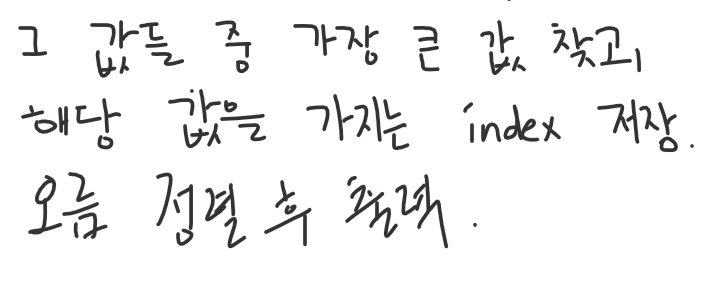 그 값들 중 가장 큰 값 찾고,
해당 값을 가지는 index 저장.
오름 정렬 후 출력.